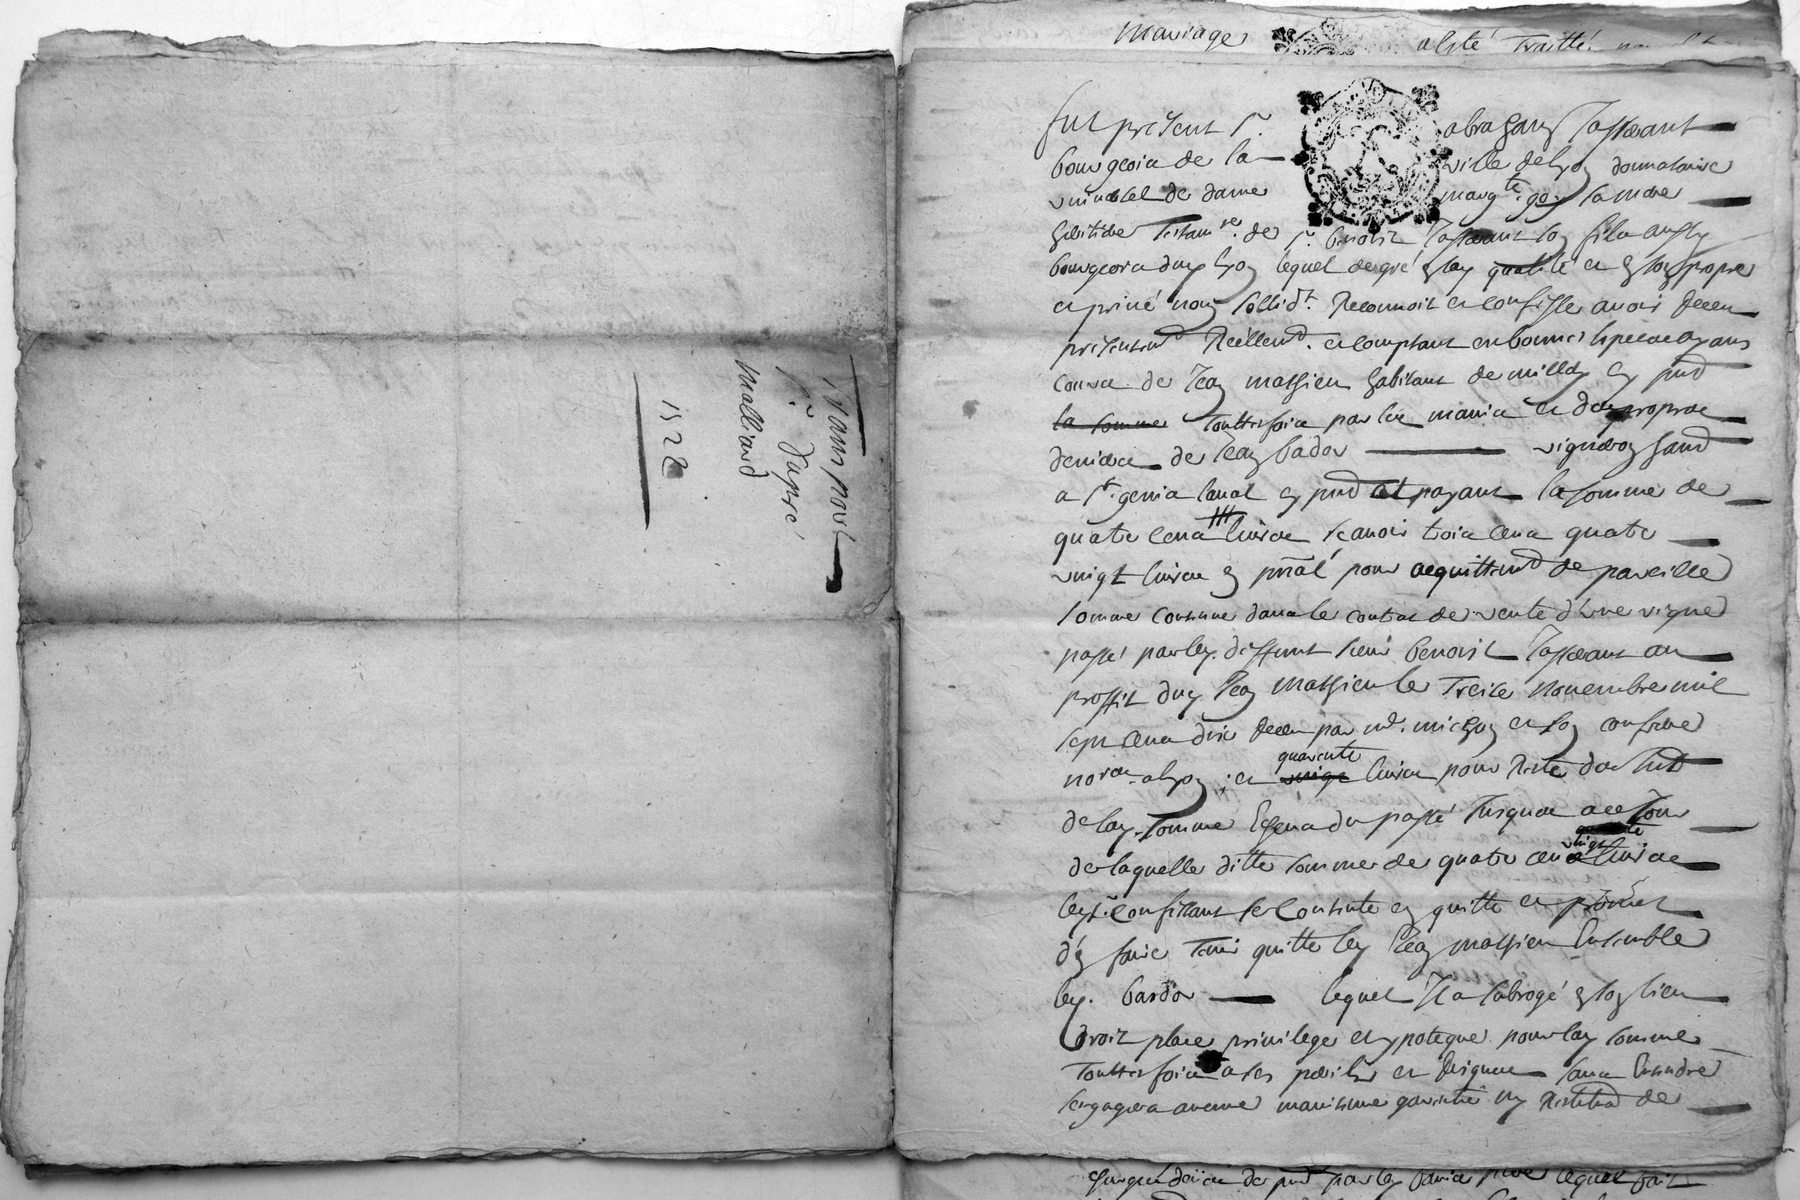 Transport
Sr. dupré
Malliard
1528
mariage alité Traitté
fut présent Sr. abraham Tasserant
bourgeois de la ville de lyon donnataire
universel de dame margte. goy sa mere
héritière Testamre. de Sr. benoist Tasserant son fils aussy
bourgeois dud. lyon lequel de gré en lad. qualité et en son propre
et privé nom sollidt. Reconnoit et confesse avoir Receu
présentemt. Réellemt. et comptant en bonnes especes ayans
cours de Jean mathieu habitant de millery cy prnt
la somme touttesfois par les mains et des propres
deniers de Jean bador vigneron hant
a st. genis laval cy prnt et payant la somme de
quatre cens livres scavoir trois cens quatre
vingt livres en prnal pour acquittemt de pareille
somme contenue dans le contrat de vente d'une vigne
passé par led. deffunt sieur benoist Tasserant au
proffit dud. Jean mathieu le Treise novembre mil
sept cens dix Receu par me. michon et son confrere
nores. a lyon ; et vingt quarente livres pour Reste des intts
de lad. somme Echeus du passé Jusques a ce Jour
de laquelle ditte somme de quatre cens vingt livres
led. sr. confessant se contente en quitte et promet
d'en faire Tenir quitte led. Jean mathieu Ensemble
led. bardor lequel Il a subrogé en son lieu
droit place privilege et ypoteque pour lad. somme
touttesfois a ses perils et Risques sans Entendre
s'engager a aucune maintenue garentie ny Restitut. de
de prnt par led. lequel fait